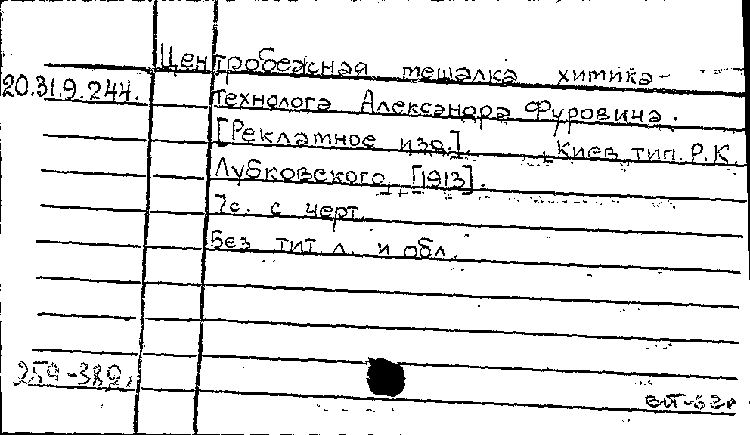 Центробежная мешалка химика-
20.31.9.244.
технолога Александра Фуровича.
[Рекламное изд.]. Киев, тип. Р.К.
Лубковского, [1913].
7с. с черт.
Без тит. л. и обл.
259-389.